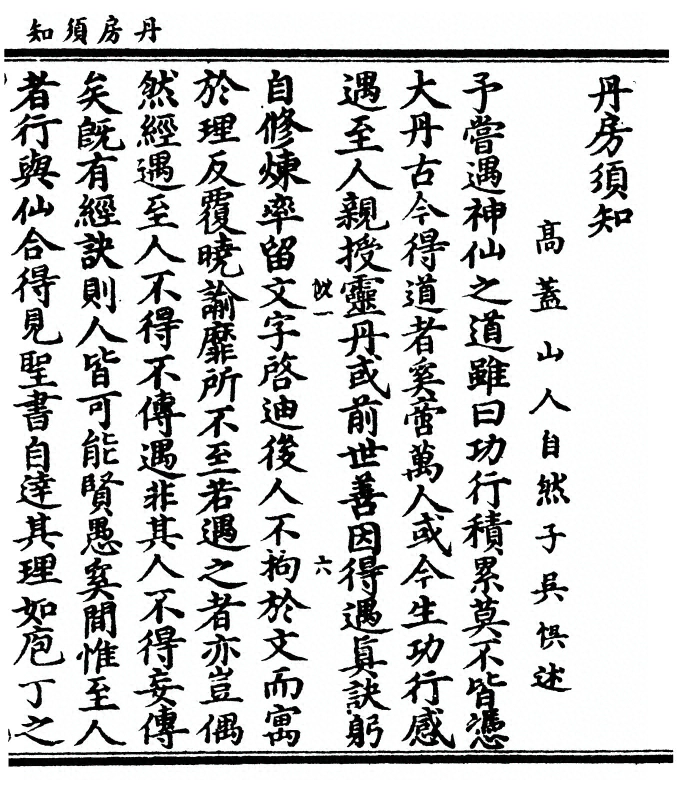 丹房須知
丹房須知
高蓋山人自然子吳悞述
予嘗遇神仙之道雖曰功行積累莫不皆憑
大丹古今得道者奚啻萬人或今生功行感
遇至人親授靈丹或前世善因得遇眞訣躬
六
自修煉率留文字啓迪後人不拘於文而寓
於理反覆曉諭靡所不至若遇之者亦豈偶
然經遇至人不得不傳遇非其人不得妄傳
矣旣有經訣則人皆可能賢愚奚間惟至人
者行與仙合得見聖書自達其理如庖丁之